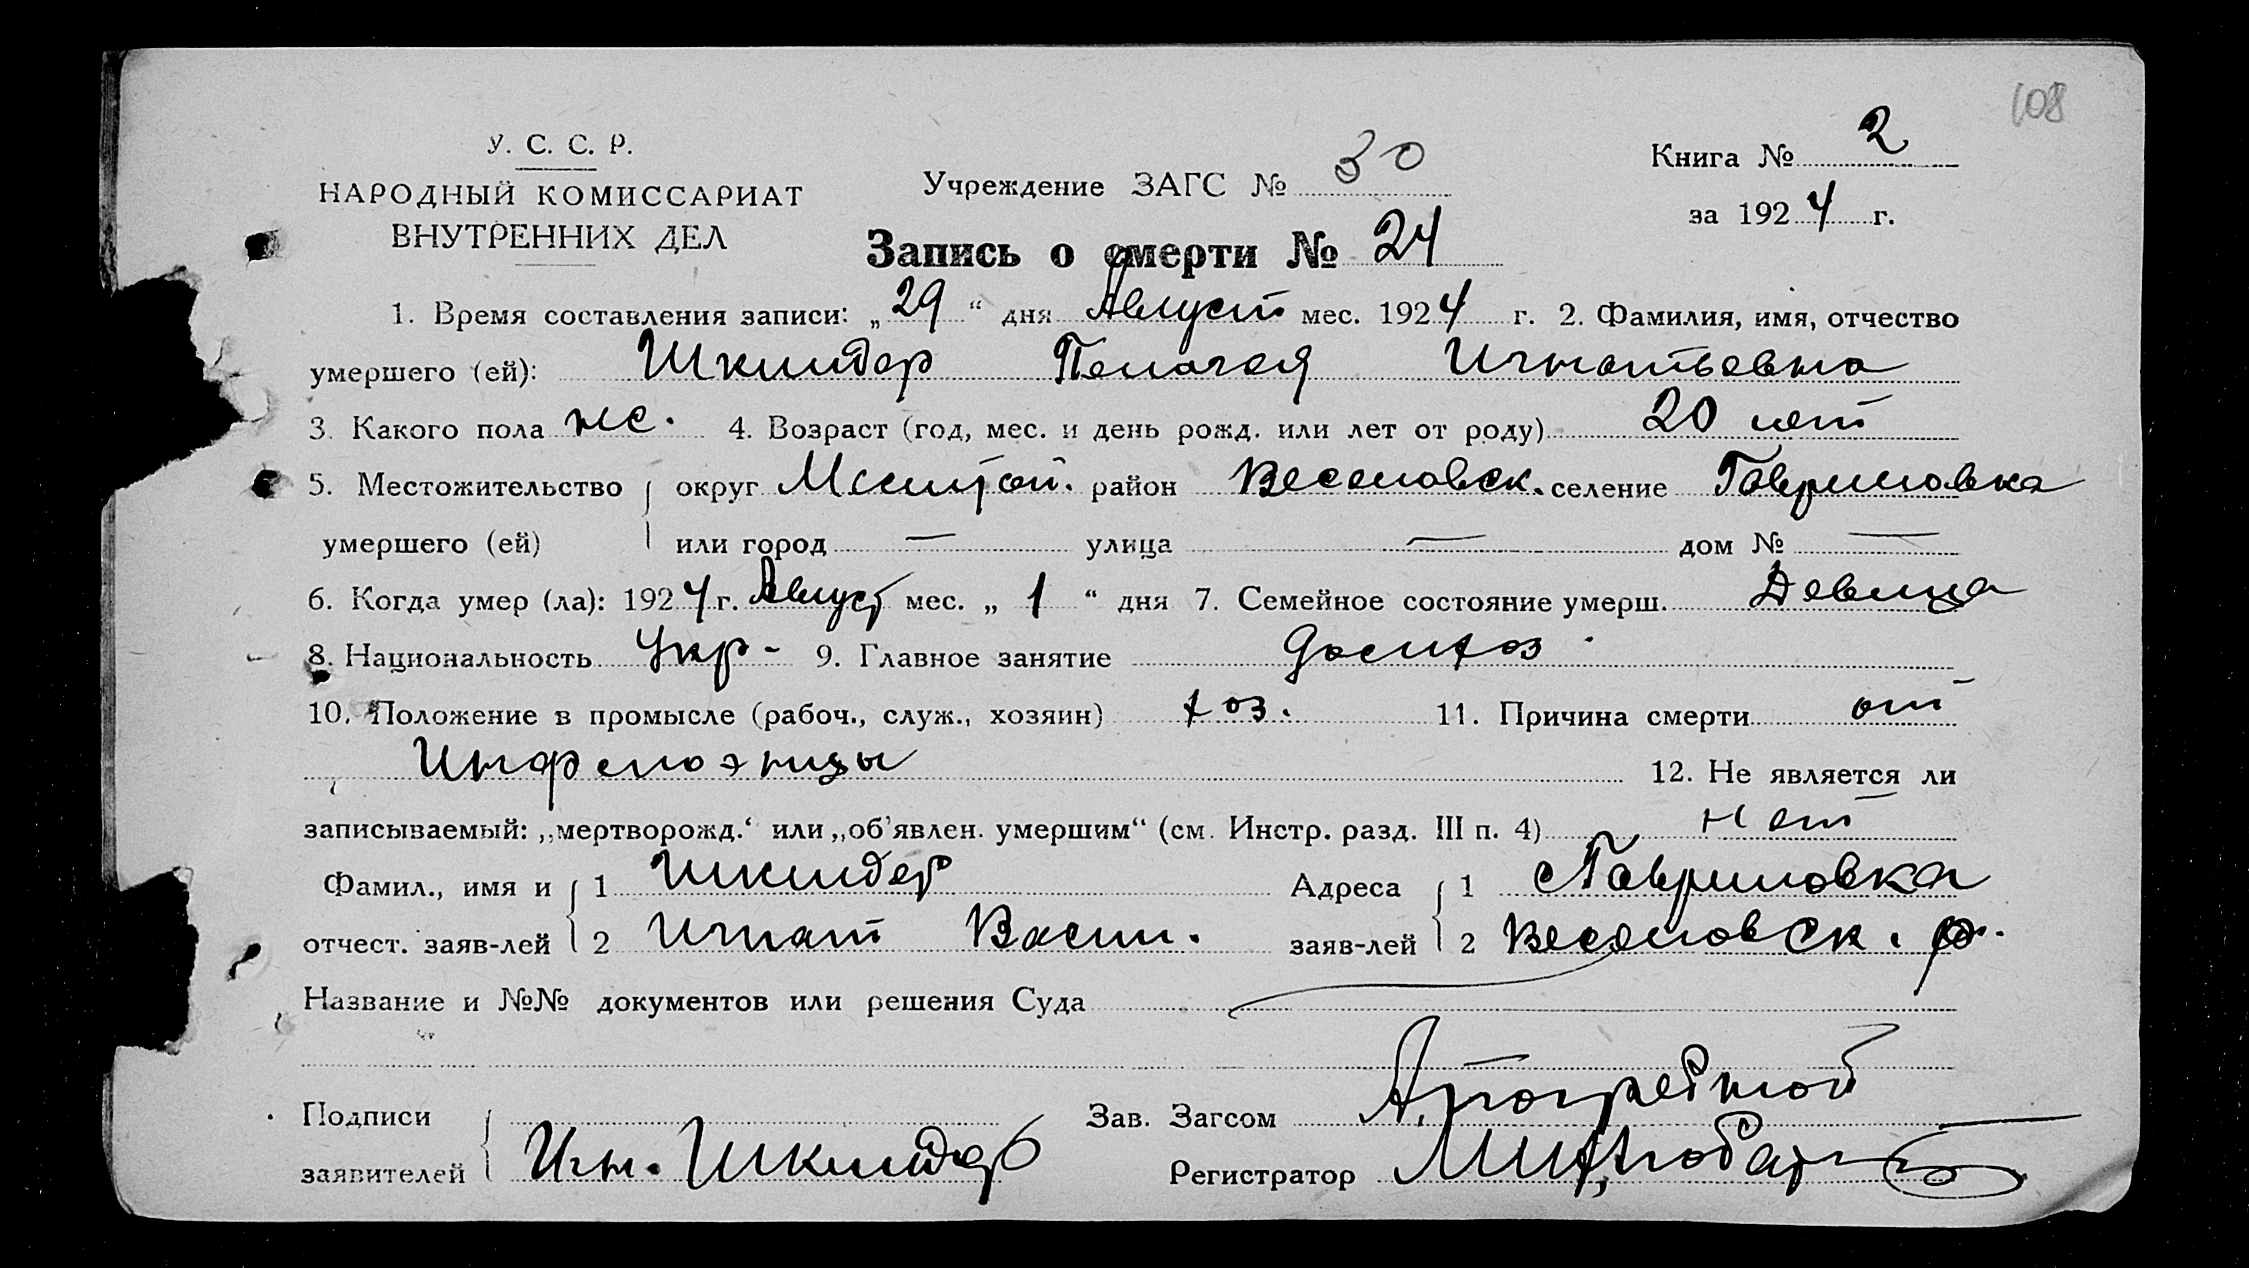 108
У. С. С. Р.
НАРОДНЫЙ КОМИССАРИАТ
ВНУТРЕННИХ ДЕЛ
Учреждение ЗАГС № 30
Книга № 2
за 1924 г.
Запись о смерти № 24
1. Время составления записи: „29“ дня Август мес. 1924 г. 2. Фамилия, имя, отчество
умершего (ей): Шкиндер Пелагея Игнатьевна
3. Какого пола ж. 4. Возраст (год, мес. и день рожд. или лет от роду) 20 лет
5. Местожительство округ район Веселовск. селение Гавриловка
умершего (ей) или город — улица — дом № —
6. Когда умер (ла): 1924 г. Август мес. „1“ дня 7. Семейное состояние умерш. Девица
8. Национальность Укр- 9. Главное занятие
10. Положение в промысле (рабоч., служ., хозяин) хоз. 11. Причина смерти от
Инфлюэнцы 12. Не является ли
записываемый: „мертворожд.‘ или „об’явлен. умершим“ (см. Инстр. разд. III п. 4) нет
Фамил., имя и 1 Шкиндер Адреса 1 с Гавриловка
отчест. заяв-лей 2 Игнат Васил. заяв-лей 2 Веселовск. р.
Название и №№ документов или решения Суда
Подписи Зав. Загсом
заявителей Игн. Шкиндер Регистратор